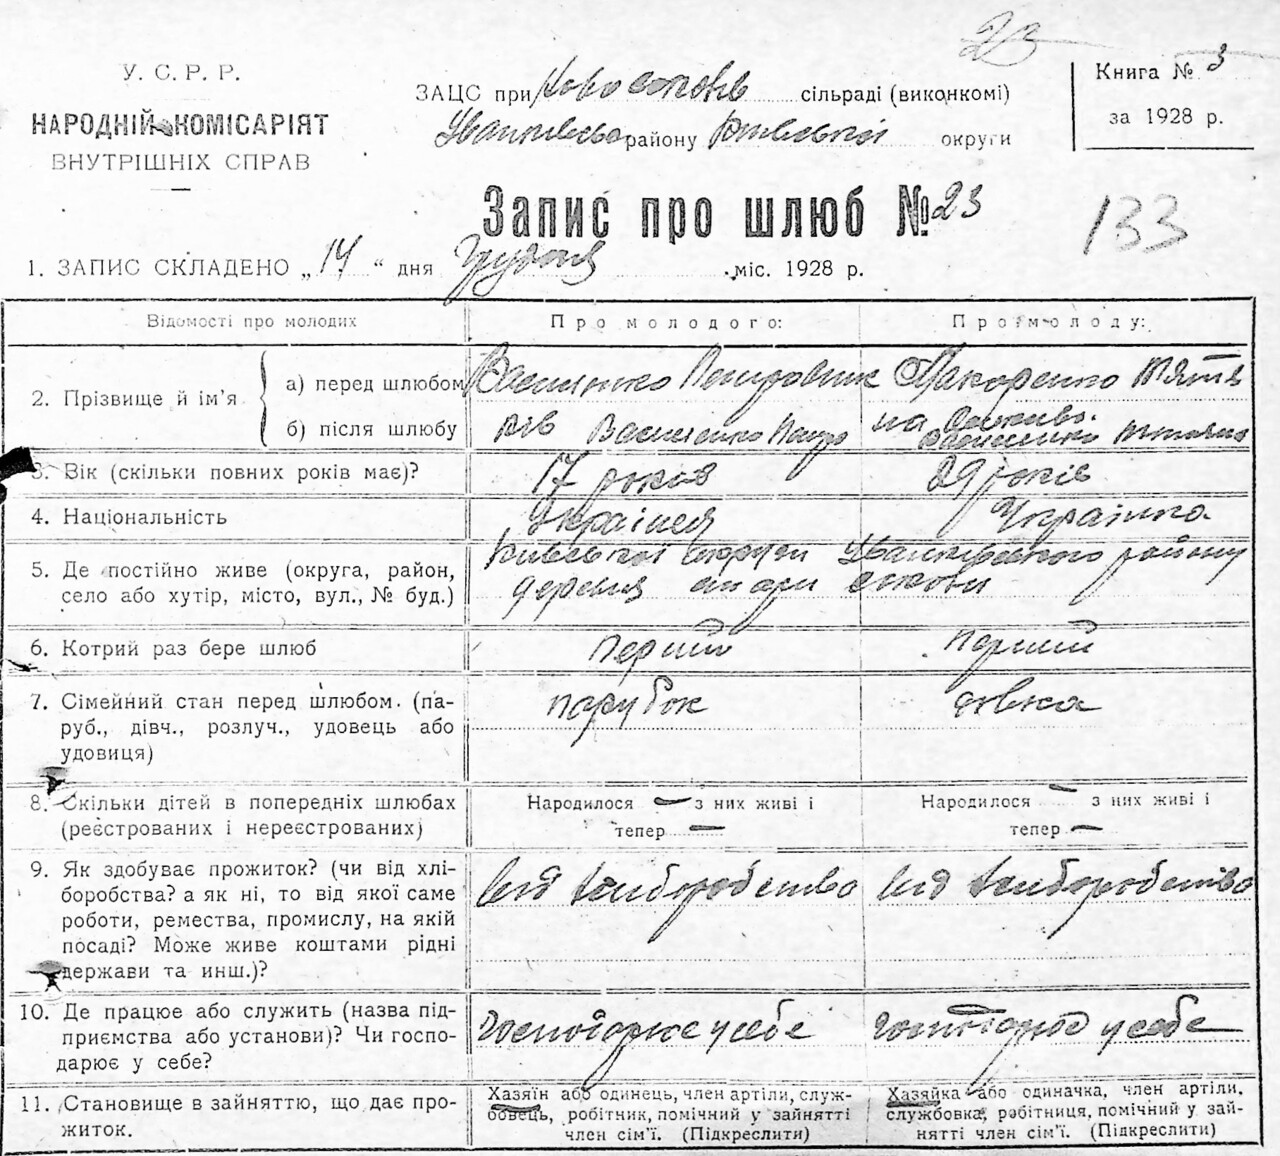 23
У. С. Р. Р.
НАРОДНІЙ КОМІСАРІЯТ
ВНУТРІШНІХ СПРАВ
ЗАЦС при сільраді (виконкомі)
району округи
Книга № 3
за 1928 р.
Запис про шлюб № 23
133
1. ЗАПИС СКЛАДЕНО „14“ дня Грудня міс. 1928 р.
Відомості про молодих
Про молодого:
Про молоду:
2. Прізвище й ім’я
а) перед шлюбом
б) після шлюбу
Василенко
Макоренко Тятя
на
Василенко
3. Вік (скільки повних років має)?
17 років
29 років
4. Національність
Українец
Українка
5. Де постійно живе (округа, район,
село або хутір, місто, вул., № буд.)
Київської округи району
деревня
6. Котрий раз бере шлюб
перший
перший
7. Сімейний стан перед шлюбом. (па-
руб., дівч., розлуч., удовець або
удовиця)
парубок
дівка
8. Скільки дітей в попередніх шлюбах
(реєстрованих і нереєстрованих)
Народилося — з них живі і
тепер —
Народилося — з них живі і
тепер —
9. Як здобуває прожиток? (чи від хлі-
боробства? а як ні, то від якої саме
роботи, ремества, промислу, на якій
посаді? Може живе коштами рідні
держави та инш.)?
від хлиборобство
від хлиборобство
10. Де працює або служить (назва під-
приємства або установи)? Чи госпо-
дарює у себе?
у себе
у себе
11. Становище в зайняттю, що дає про-
житок.
Хазяїн або одинець, член артілі, служ-
бовець, робітник, помічний у зайнятті
член сім’ї. (Підкреслити)
Хазяйка або одиначка, член артілі,
службовка, робітниця, помічний у зай-
нятті член сім’ї. (Підкреслити)